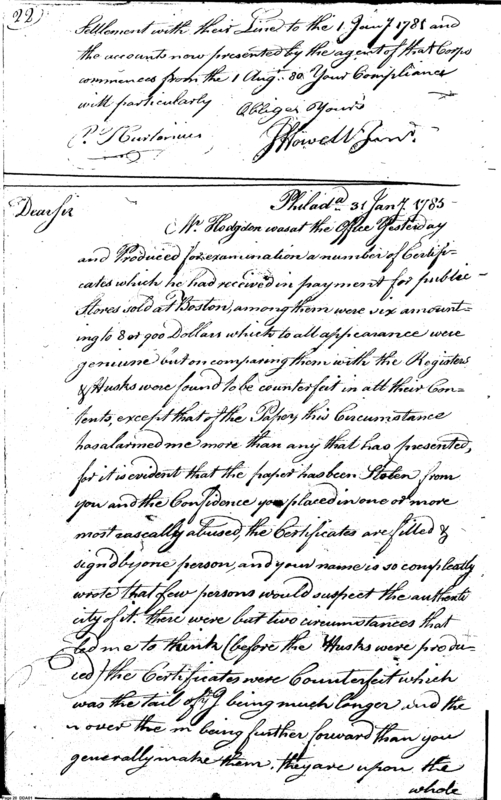 22)
Settlement with their Line to the 1 Jany 1781 and
the accounts now presented by the agent of that Corps
commences from the 1 Augt. 80. Your Compliance
will particularly Oblige Yours
P. Kurtenius JHowell Junr.
Philada. 31 Jany 1785
Dear Sir
Mr Hodgdon was at the Office Yesterday
and Produced for examination a number of Certifi-
cates which he had received in payment for public
Stores sold at Boston, among them were six amount-
ing to 8 or 900 Dollars which to all appearance were
geniune but on compareing them with the Registers
& Husks were found to be counterfeit in all their Con-
tents, except that of the Paper, this Circumstance
has alarmed me more than any that has presented,
for it is evident that the paper has been Stolen from
you and the Confidence you placed in one or more
most rascally abused, the Certificates are filled &
signd by one person, and your name is so compleatly
wrote that few persons would suspect the authenti
city of it. there were but two circumstances that
led me to think (before the Husks were produ-
ced) the Certificates were Counterfeit which
was the tail of ye J being much longer and the
n over the m being further forward than you
generally make them. they are upon the
whole
Page 28 DDA01